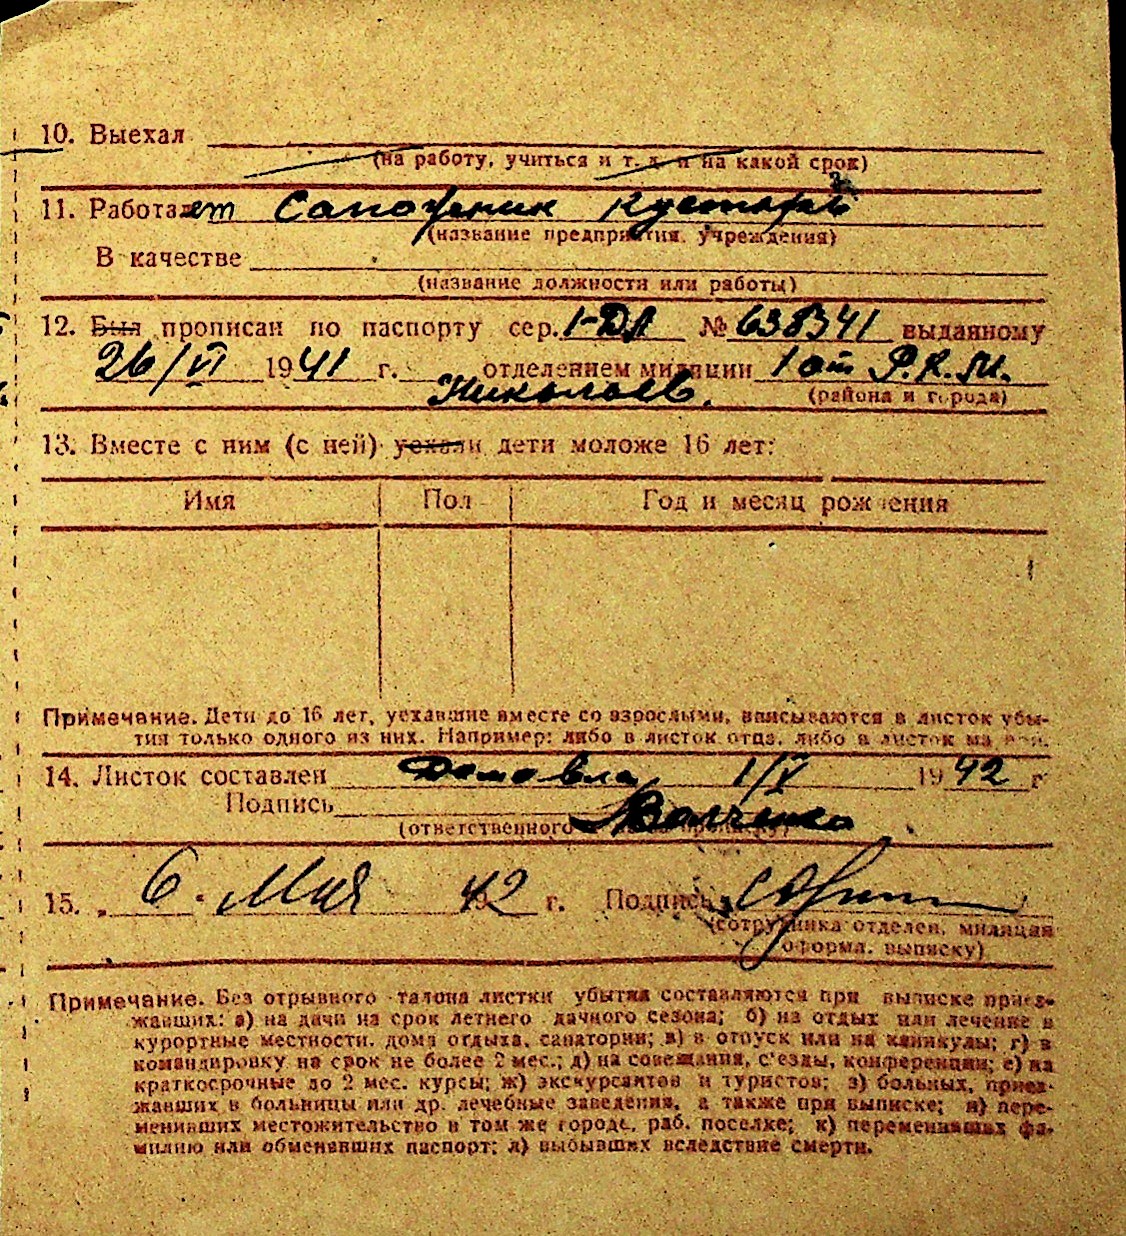 10. Выехал
(на работу, учиться и т. д. и на какой срок)
11. Работает Сапожник кустарь
(название предприятия, учреждения)
В качестве
(название должности или работы)
12. Был прописан по паспорту сер. 1-ДЛ № 638341 выданному
26/VI 1941 г. отделением милиции 1 от Р.К.М.
Николаев. (района и города)
13. Вместе с ним (с ней) уехали дети моложе 16 лет:
Имя Пол Год и месяц рождения
Примечание. Дети до 16 лет, уехавшие вместе со взрослыми, вписываются в листок убы-
тия только одного из них. Например: либо в листок отца, либо в листок матери.
14. Листок составлен 1/V 1942 г
Подпись Волченко
(ответственного
15. „6" Мая 42 г. Подпись
(сотрудника отделен. милиции
оформл. выписку)
Примечание. Без отрывного талона листки убытия составляются при выписке приез-
жавших: а) на дачи на срок летнего дачного сезона; б) на отдых или лечение в
курортные местности, дома отдыха, санатории; в) в отпуск или на каникулы; г) в
командировку на срок не более 2 мес.; д) на совещания, с'езды, конференции; е) на
краткосрочные до 2 мес. курсы; ж) экскурсантов и туристов; з) больных, приез-
жавших в больницы или др. лечебные заведения, а также при выписке; и) пере-
менивших местожительство в том же городе, раб. поселке; к) переменивших фа-
милию или обменявших паспорт; л) выбывших вследствие смерти.